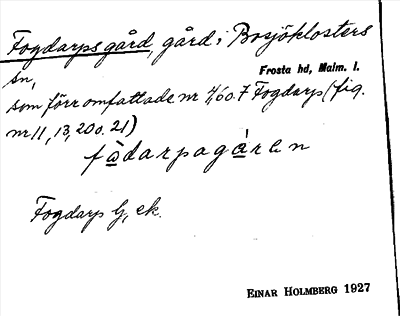 Fogdarpsgård, gård i Bosjöklosters
sn,
Frosta hd, Malm. l.
som förr omfattade nr 4, 6 o. 7 Fogdarp (fig.
nr 11, 13, 20 o. 21)
fàdarpagáren
Fogdarp G, ek.
EINAR HOLMBERG 1927